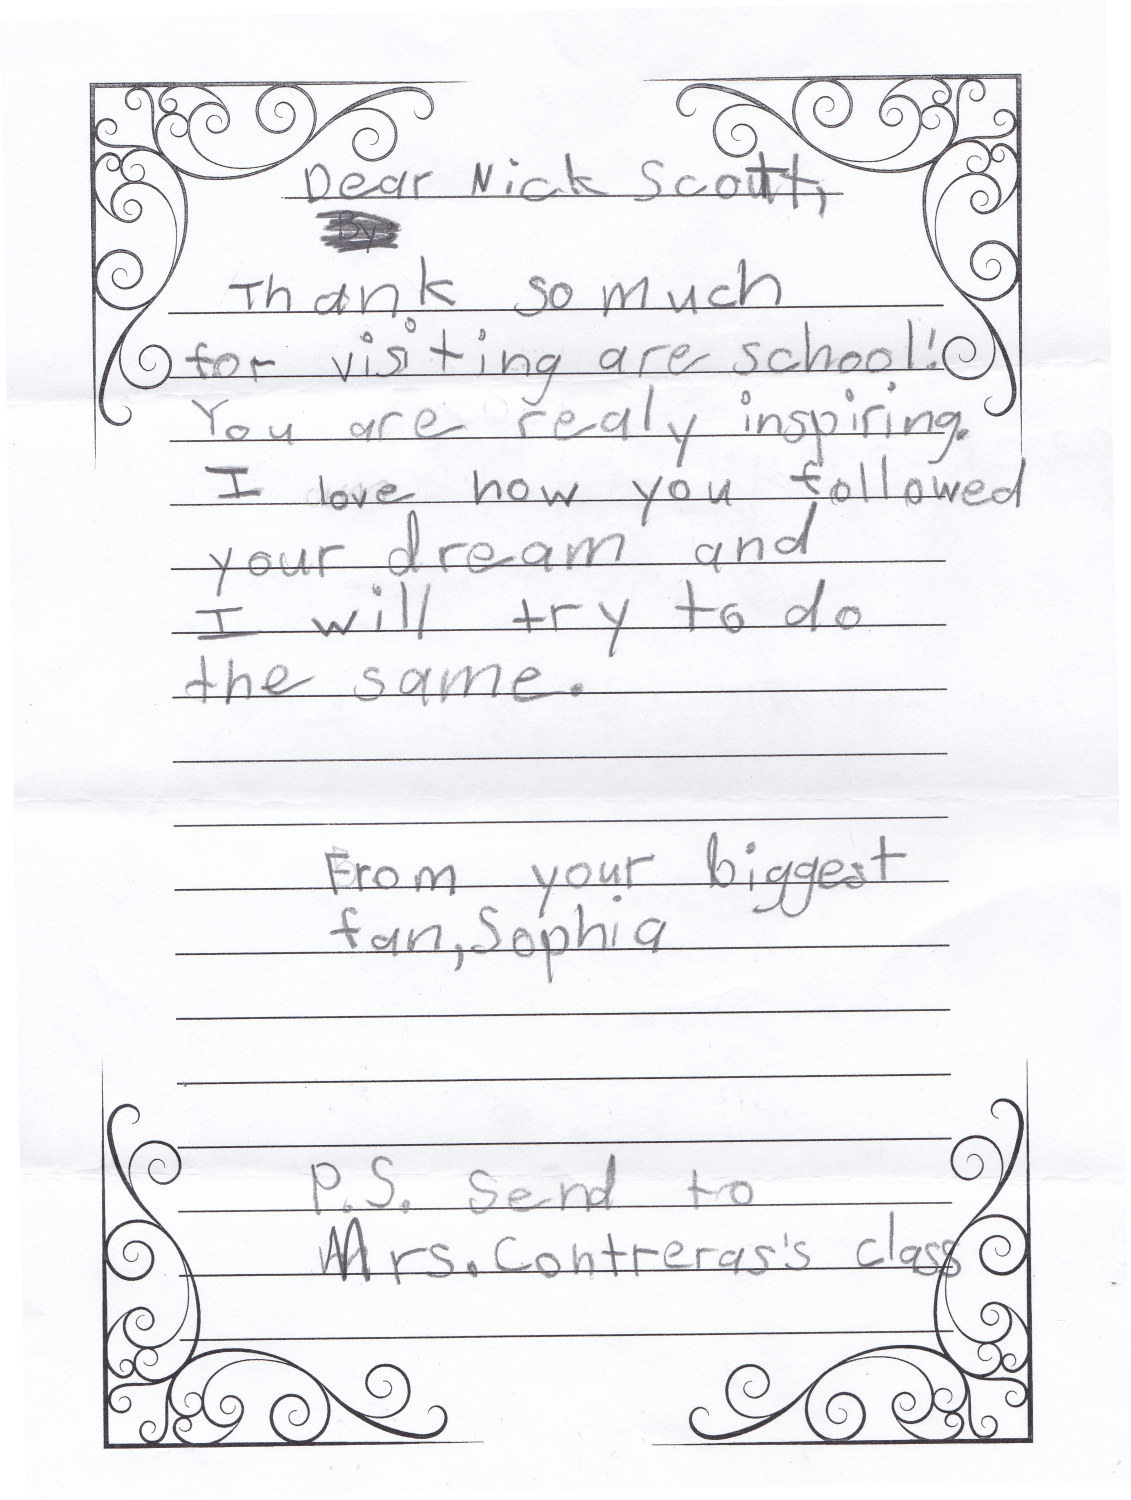 Dear Nick Scott,
By:
Thank so much
for visiting are school!
You are realy inspiring.
I love how you followed
your dream and
I will try to do
the same.
From your biggest
fan, Sophia
P.S. Send to
Mrs. Contreras's class